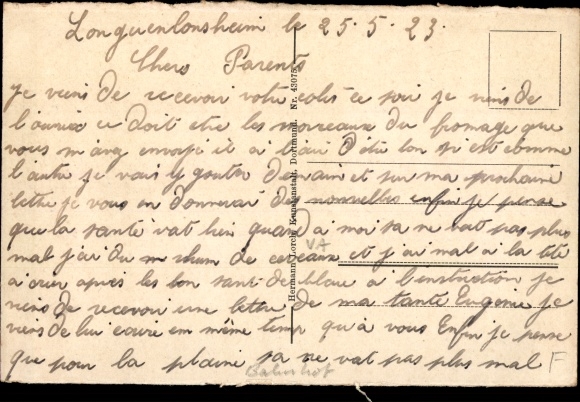 Longuenlonsheim le 25.5.23.
Chers Parents
je viens de recevoir votre colis ce soir je viens de
l'ouvrir ce doit etre les morceaux du fromage que
vous m'avez envoyé il a l'air d'etre bon si est comme
l'autre je vais y gouter demain et sur ma prochaine
lettre je vous en donnerai de nouvelles enfin je pense
que la santé vat bien quand a moi sa ne vat pas plus
mal j'ai du rhum de cerveaux VA et j'ai mal a la tete
a crier après les bon sant de blaue a l'instruction je
viens de recevoir une lettre de ma tante Eugenie je
viens de lui ecrire em même temp qu'à vous Enfin je pense
que pour la plaine sa ne vat pas plus mal F
Bahnhof
Hermann Lorch, Kunstanstalt, Dortmund. Nr. 43075